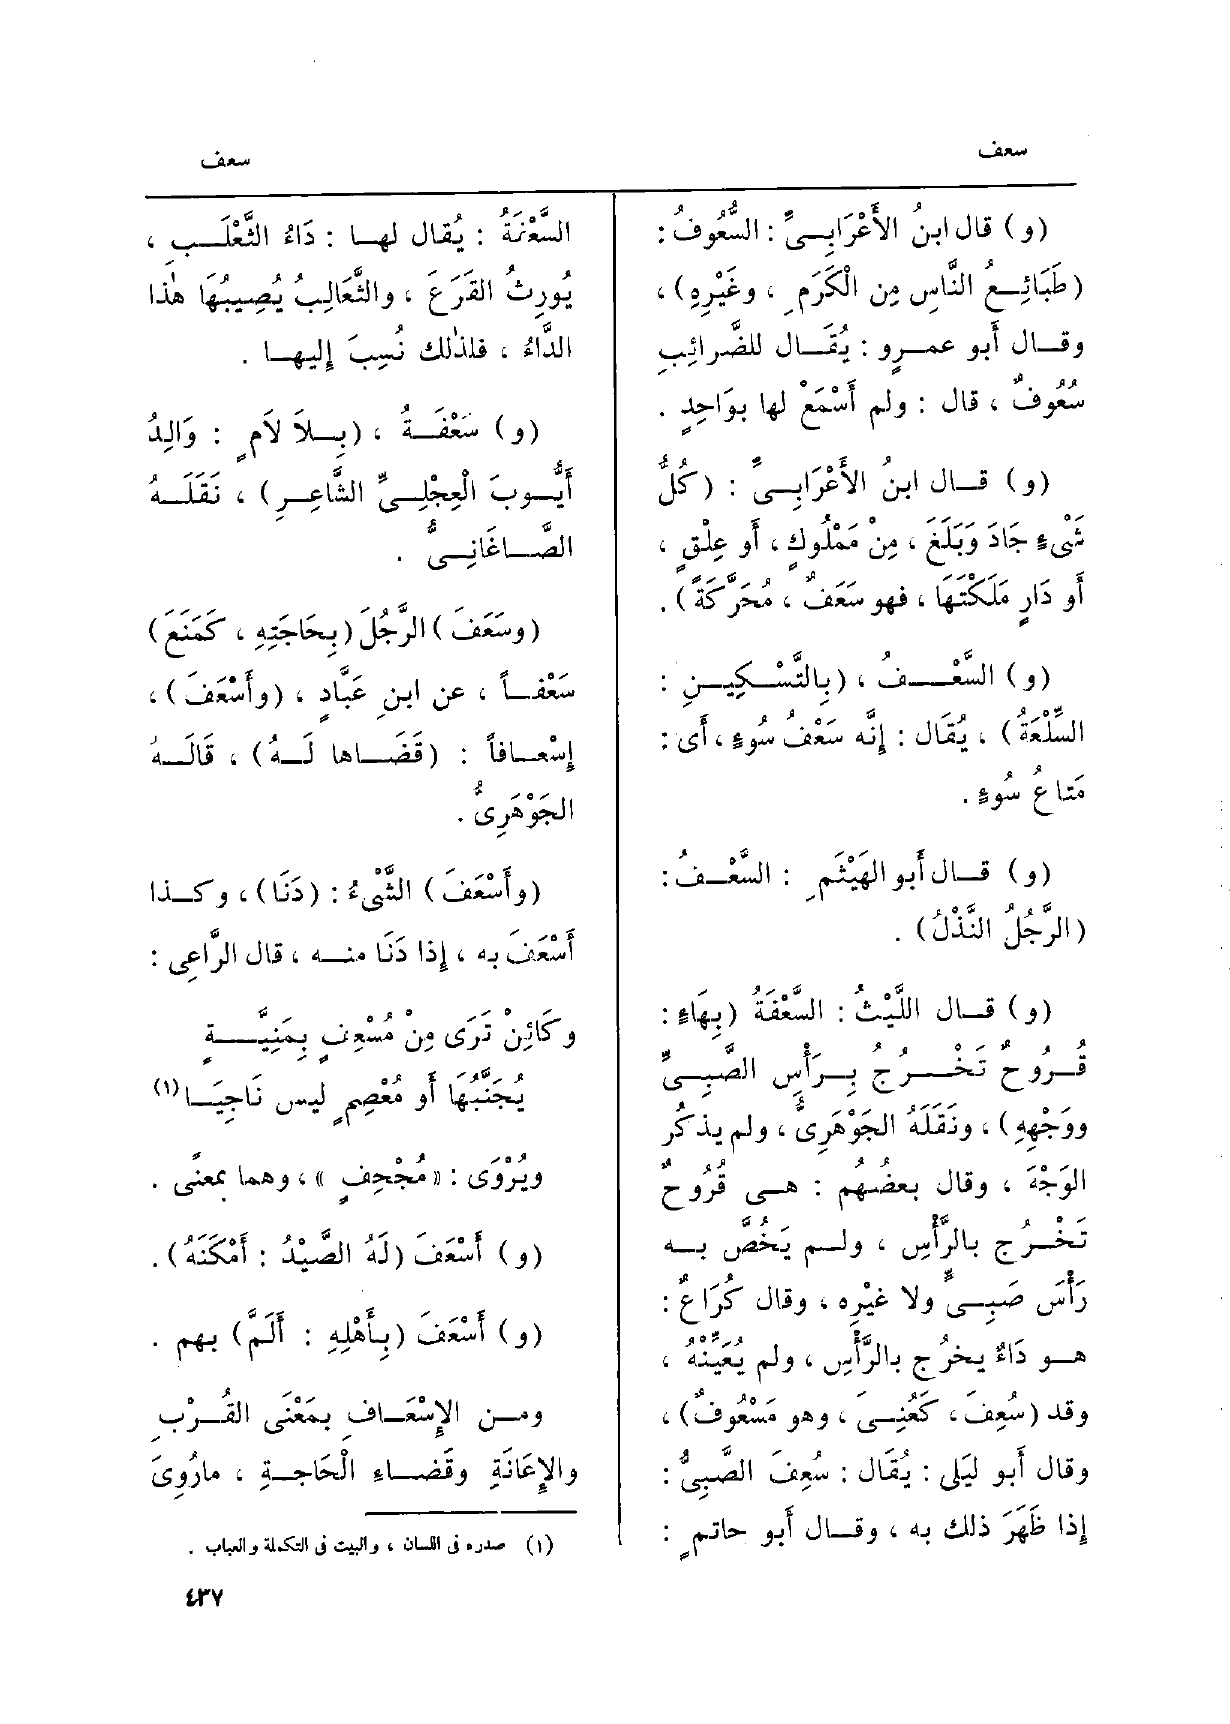 سعف
سعف
(و) قال ابنُ الأَعْرَابِىِّ : السُّعُوفُ :
(طَبَائِعُ النَّاسِ مِن الْكَرَمِ ، وغَيْرِهِ) ،
وقال أَبو عمرٍو : يُقَال للضَّرائِبِ
سُعُوفٌ ، قال : ولم أَسْمَعْ لها بوَاحِدٍ .
(و) قال ابنُ الأَعْرَابِىِّ : (كُلُّ
شَىْءٍ جَادَ وَبَلَغَ ، مِنْ مَمْلُوكٍ ، أَو عِلْقٍ ،
أَو دَارٍ مَلَكْتَهَا ، فهو سَعَفٌ ، مُحَرَّكَةً) .
(و) السَّعْفُ ، (بِالتَّسْكِينِ :
السِّلْعَةُ) ، يُقَال : إِنَّه سَعْفُ سُوءٍ ، أَى :
مَتاعُ سُوءٍ .
(و) قال أَبو الهَيْثَمِ : السَّعْفُ :
(الرَّجُلُ النَّذْلُ) .
(و) قال اللَّيْثُ : السَّعْفَةُ (بِهَاءٍ :
قُرُوحٌ تَخْرُجُ بِرَأْسِ الصَّبِىِّ
ووَجْهِهِ) ، ونَقَلَهُ الجَوْهَرِىُّ ، ولم يذكُر
الوَجْهَ ، وقال بعضُهم : هى قُرُوحٌ
تَخْرُج بالرَّأْسِ ، ولم يَخُصَّ به
رَأْسَ صَبِىٍّ ولا غَيْرِه ، وقال كُرَاعٌ :
هو دَاءٌ يخرُج بالرَّأْسِ ، ولم يُعَيِّنْهُ ،
وقد (سُعِفَ ، كَعُنِىَ ، وهو مَسْعُوفٌ) ،
وقال أَبو لَيلى : يُقَال : سُعِفَ الصَّبِىُّ :
إِذا ظَهَرَ ذلك به ، وقال أَبو حاتمٍ :
السَّعْفَةُ : يُقال لها : دَاءُ الثَّعْلَبِ ،
يُورِثُ القَرَعَ ، والثَّعَالِبُ يُصِيبُهَا هٰذا
الدَّاءُ ، فلذٰلك نُسِبَ إِليها .
(و) سَعْفَةُ ، (بلاَ لاَمٍ : وَالِدُ
أَيُّوبَ الْعِجْلِىِّ الشَّاعِرِ) ، نَقَلَهُ
الصَّاغَانِىُّ .
(وسَعَفَ) الرَّجُلَ (بِحَاجَتِهِ ، كَمَنَعَ)
سَعْفاً ، عن ابنِ عَبَّادٍ ، (وأَسْعَفَ) ،
إِسْعافاً : (قَضَاها لَهُ) ، قَالَهُ
الجَوْهَرِىُّ .
(وأَسْعَفَ) الشَّىْءُ : (دَنَا) ، وكذا
أَسْعَفَ به ، إِذا دَنَا منه ، قال الرَّاعِى :
وكَائِنْ تَرَى مِنْ مُسْعِفٍ بِمَنِيَّةٍ
يُجَنَّبُهَا أَو مُعْصِمٍ ليس نَاجِيَا (١)
ويُرْوَى : «مُجْحِفٍ» ، وهما بمعنًى .
(و) أَسْعَفَ (لَهُ الصَّيْدُ : أَمْكَنَهُ) .
(و) أَسْعَفَ (بِأَهْلِهِ : أَلَمَّ) بهم .
ومن الإِسْعَافِ بمَعْنَى القُرْبِ
والإِعَانَةِ وقَضَاءِ الْحَاجةِ ، مارُوِىَ
(١) صدره فى اللسان ، والبيت فى التكملة والعباب .
٤٣٧